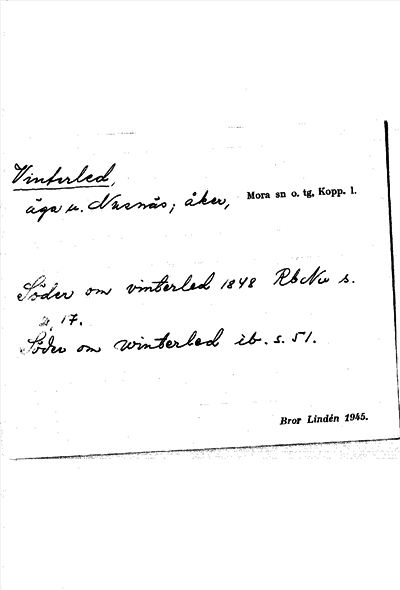 Vinterled,
äga u. Nusnäs; åker, Mora sn o. tg, Kopp. l.
Söder om vinterled 1848 RbNu s.
17.
Söder om Winterled ib. s. 51.
Bror Lindén 1945.